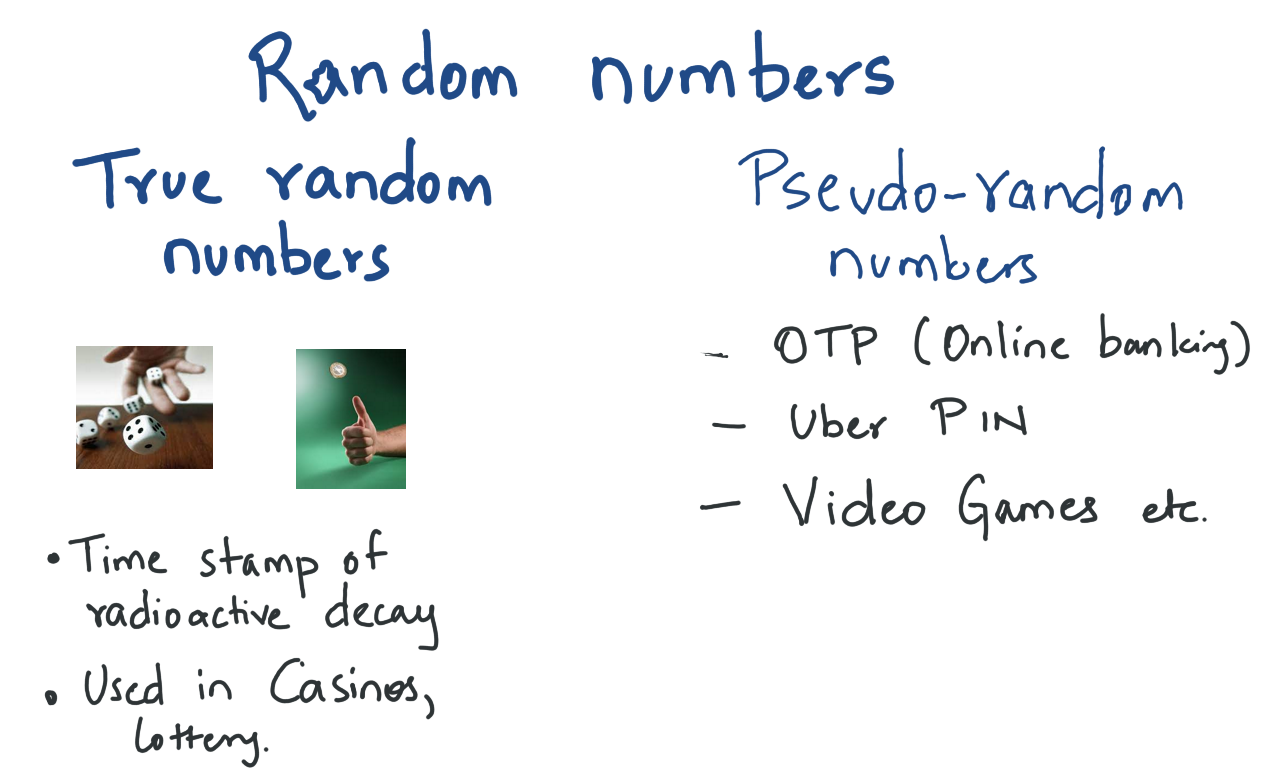 Random numbers
True random
numbers
• Time stamp of
radioactive decay
• Used in Casinos,
lottery.
Pseudo-random
numbers
- OTP (Online banking)
- Uber PIN
- Video Games etc.